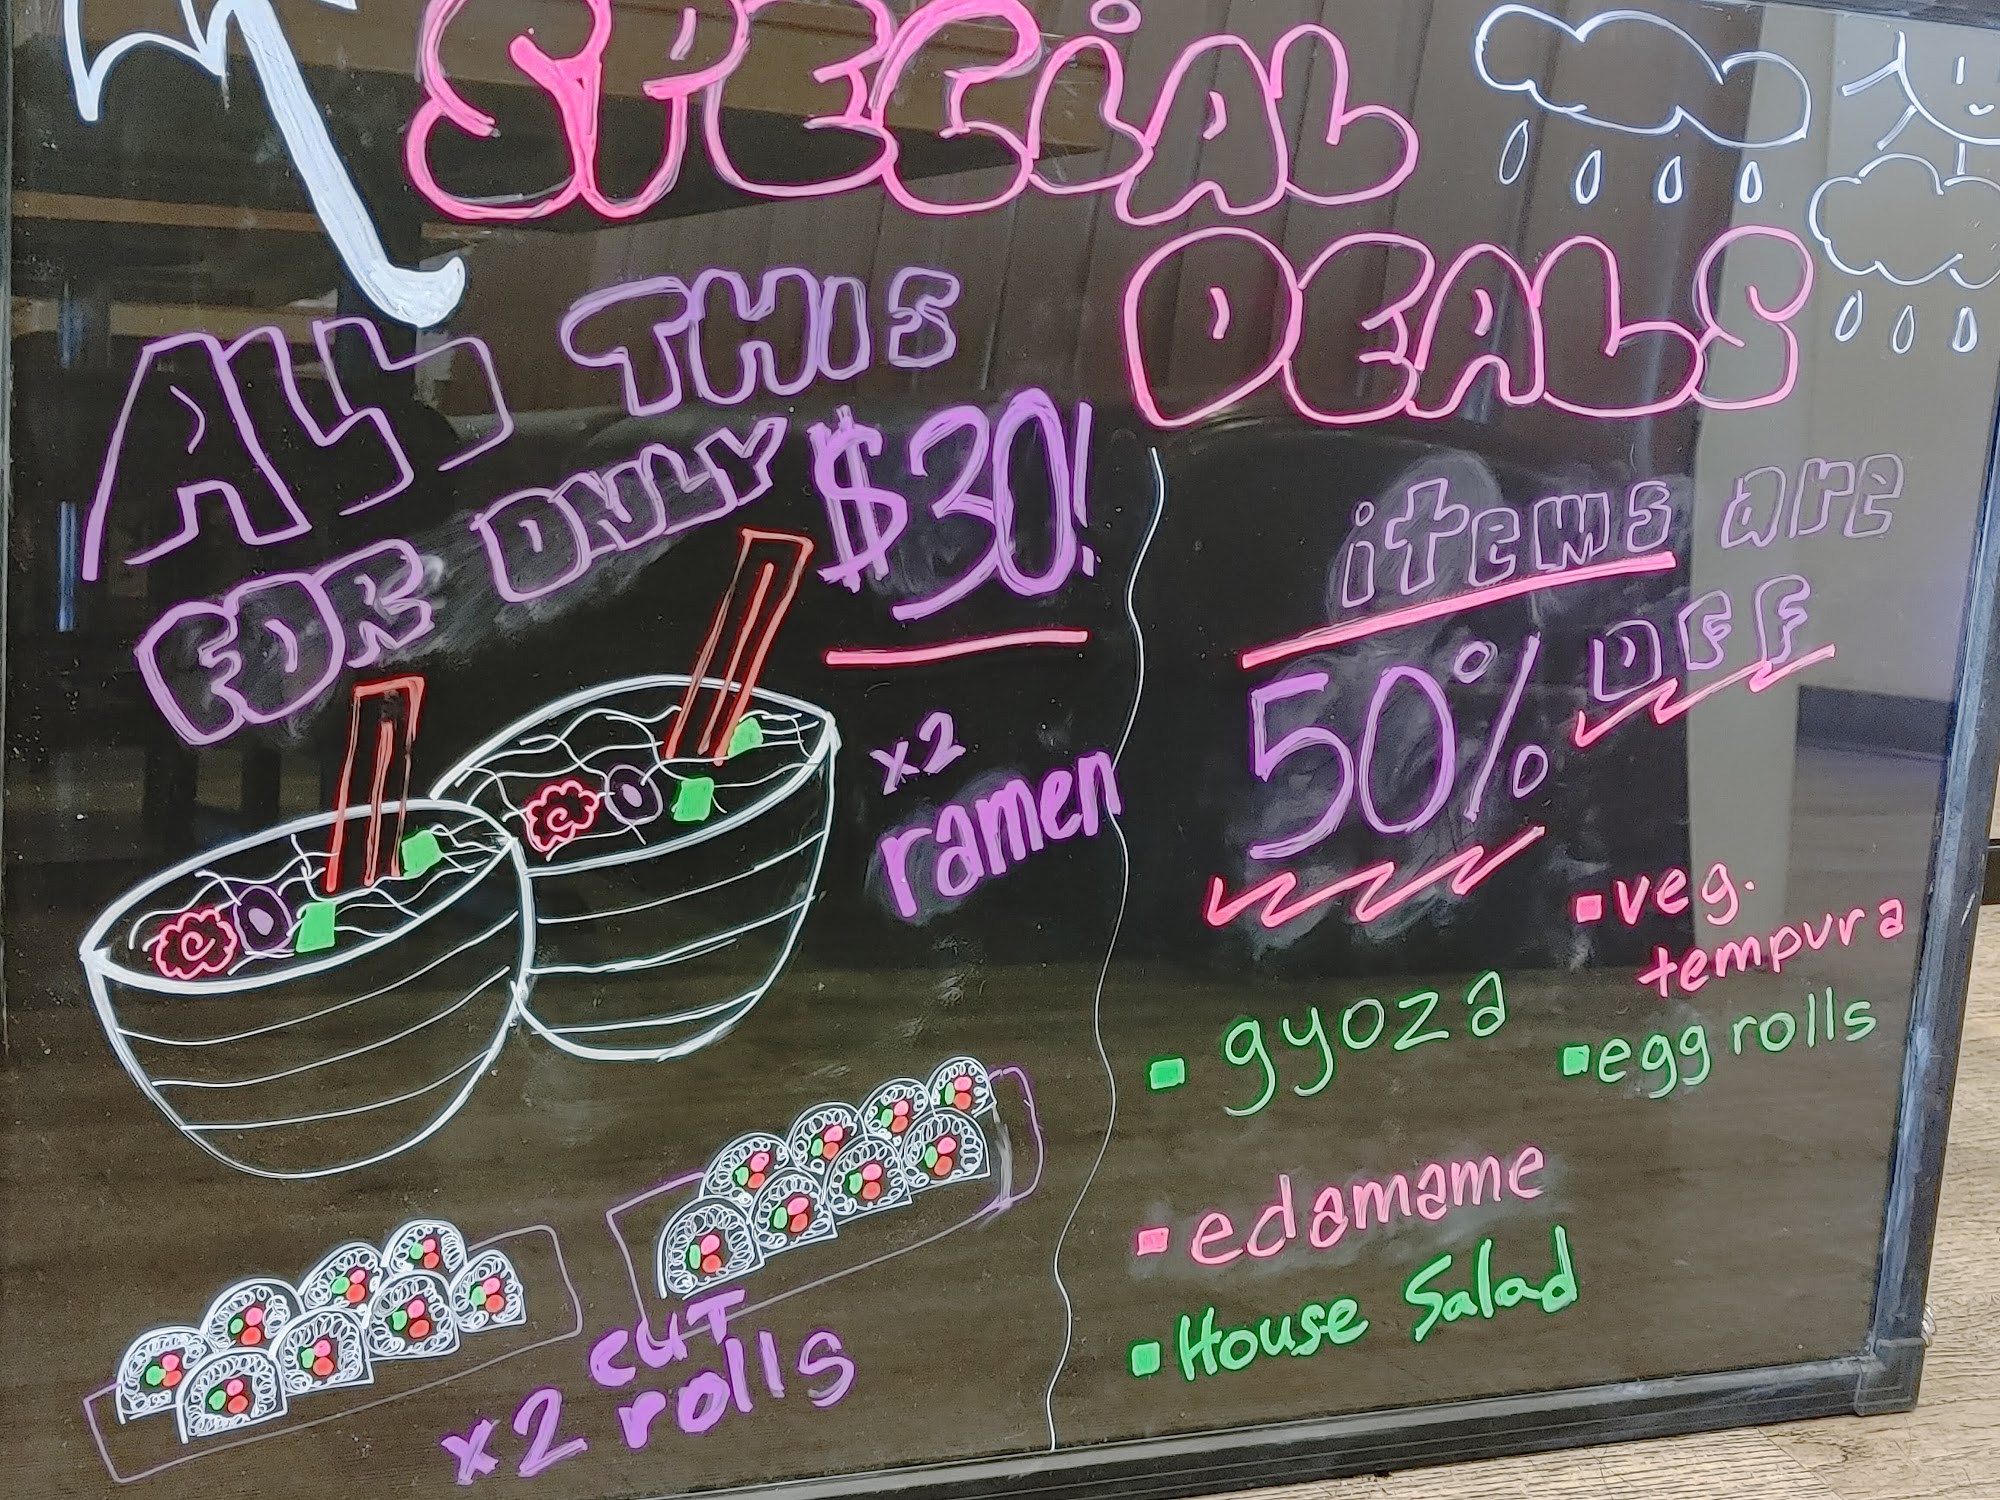 SPECiAL
DEALS
ALL THIS
FOR ONLY $30!
x2
ramen
x2 cut rolls
items are
50% OFF
veg.
tempura
gyoza
egg rolls
edamame
House Salad